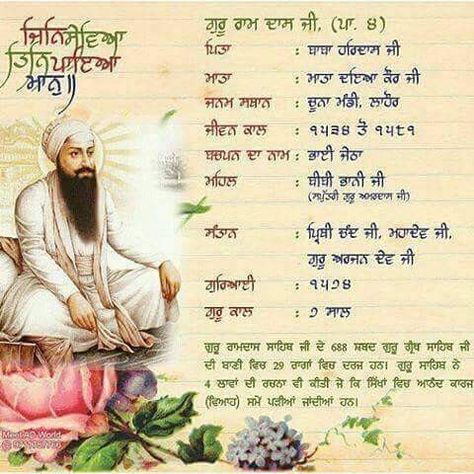 ਜਿਨਿ ਸੇਵਿਆ
ਤਿਨਿ ਪਾਇਆ
ਮਾਨੁ॥
ਗੁਰੂ ਰਾਮ ਦਾਸ ਜੀ, (ਪਾ. ੪)
ਪਿਤਾ : ਬਾਬਾ ਹਰਿਦਾਸ ਜੀ
ਮਾਤਾ : ਮਾਤਾ ਦਇਆ ਕੌਰ ਜੀ
ਜਨਮ ਸਥਾਨ : ਚੂਨਾ ਮੰਡੀ, ਲਾਹੌਰ
ਜੀਵਨ ਕਾਲ : ੧੫੩੪ ਤੋਂ ੧੫੮੧
ਬਚਪਨ ਦਾ ਨਾਮ : ਭਾਈ ਜੇਠਾ
ਮਹਿਲ : ਬੀਬੀ ਭਾਨੀ ਜੀ
(ਸਪੁੱਤਰੀ ਗੁਰੂ ਅਮਰਦਾਸ ਜੀ)
ਸੰਤਾਨ : ਪ੍ਰਿਥੀ ਚੰਦ ਜੀ, ਮਹਾਦੇਵ ਜੀ,
ਗੁਰੂ ਅਰਜਨ ਦੇਵ ਜੀ
ਗੁਰਿਆਈ : ੧੫੭੪
ਗੁਰੂ ਕਾਲ : ੭ ਸਾਲ
ਗੁਰੂ ਰਾਮਦਾਸ ਸਾਹਿਬ ਜੀ ਦੇ 688 ਸ਼ਬਦ ਗੁਰੂ ਗ੍ਰੰਥ ਸਾਹਿਬ ਜੀ
ਦੀ ਬਾਣੀ ਵਿਚ 29 ਰਾਗਾਂ ਵਿਚ ਦਰਜ ਹਨ। ਗੁਰੂ ਸਾਹਿਬ ਨੇ
4 ਲਾਵਾਂ ਦੀ ਰਚਨਾ ਵੀ ਕੀਤੀ ਜੋ ਕਿ ਸਿੱਖਾਂ ਵਿਚ ਆਨੰਦ ਕਾਰਜ
(ਵਿਆਹ) ਸਮੇਂ ਪੜੀਆਂ ਜਾਂਦੀਆਂ ਹਨ।
World